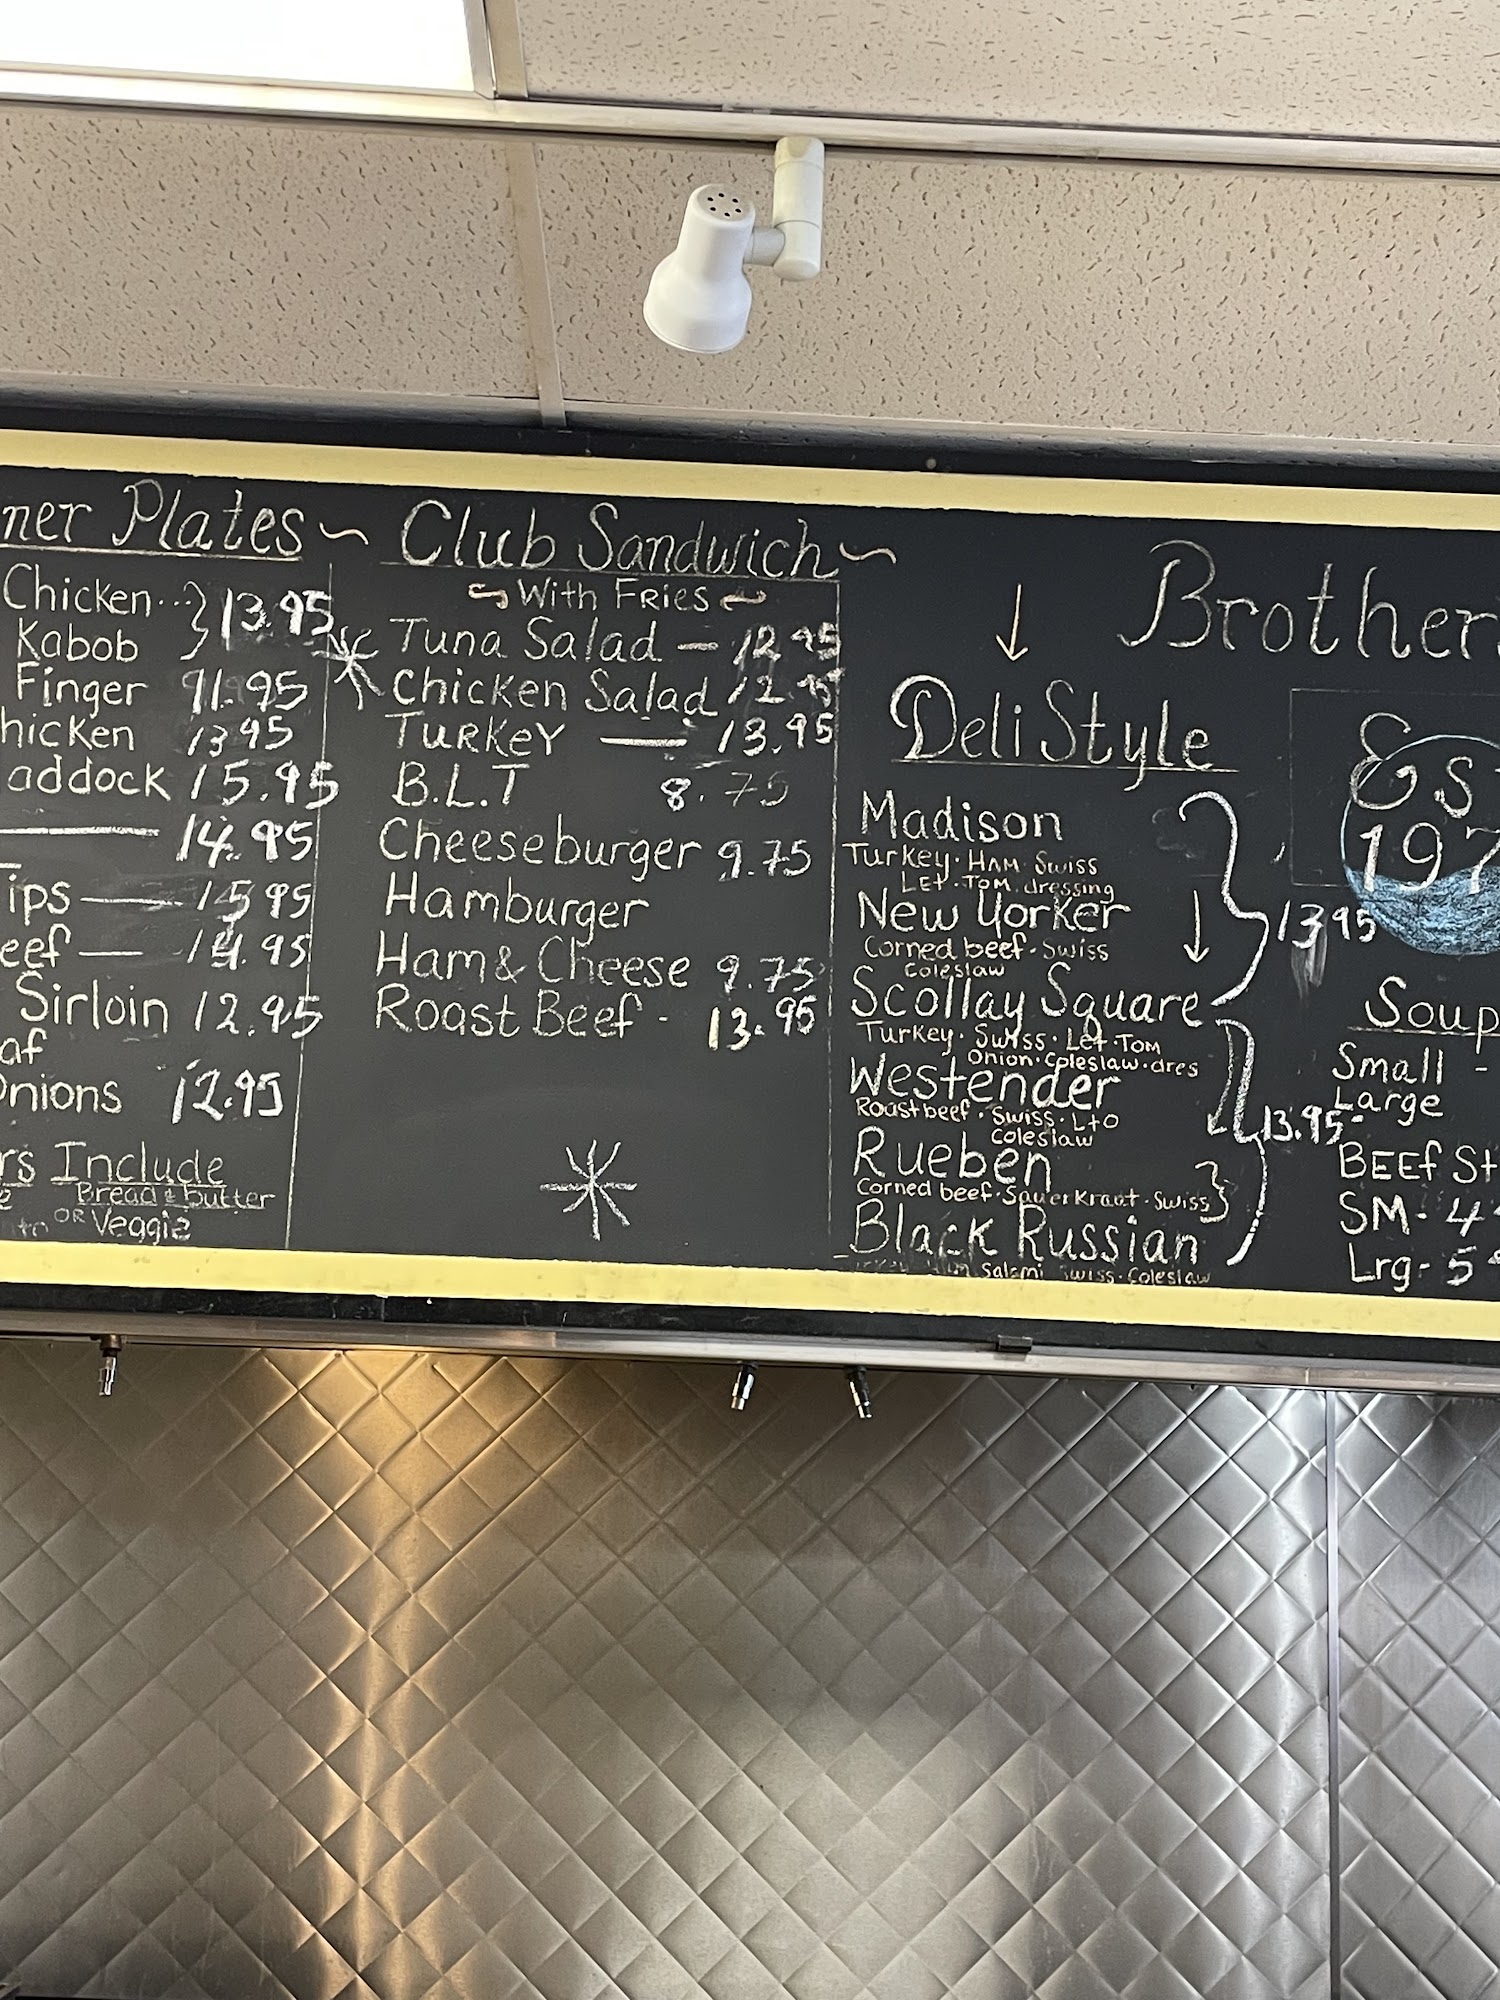 ner Plates
Chicken... 13.95
Kabob
Finger 11.95
hicken 13 95
addock 15.95
14.95
Tips 15 95
eef 14.95
Sirloin 12.95
af
Onions 12.95
rs Include
Bread & butter
OR Veggie
Club Sandwich
With FRies
Tuna Salad — 12.95
Chicken Salad 12.95
TuRKeY — 13.95
B.L.T 8.75
Cheeseburger 9.75
Hamburger
Ham & Cheese 9.75
Roast Beef - 13.95
Brother
Deli Style
Madison
Turkey. HAM. Swiss
Let. TOM. dressing
New Yorker
Corned beef. Swiss
Coleslaw
13 95
Scollay Square
Turkey. Swiss. Let. TOM
Onion. Coleslaw. dres
Westender
Roast beef. Swiss. Lto
Coleslaw
13.95
Rueben
Corned beef. SauerKraut. Swiss
Black Russian
Salami Swiss. Coleslaw
Es
197
Soup
Small -
Large
BEEf St
SM- 4
Lrg- 5